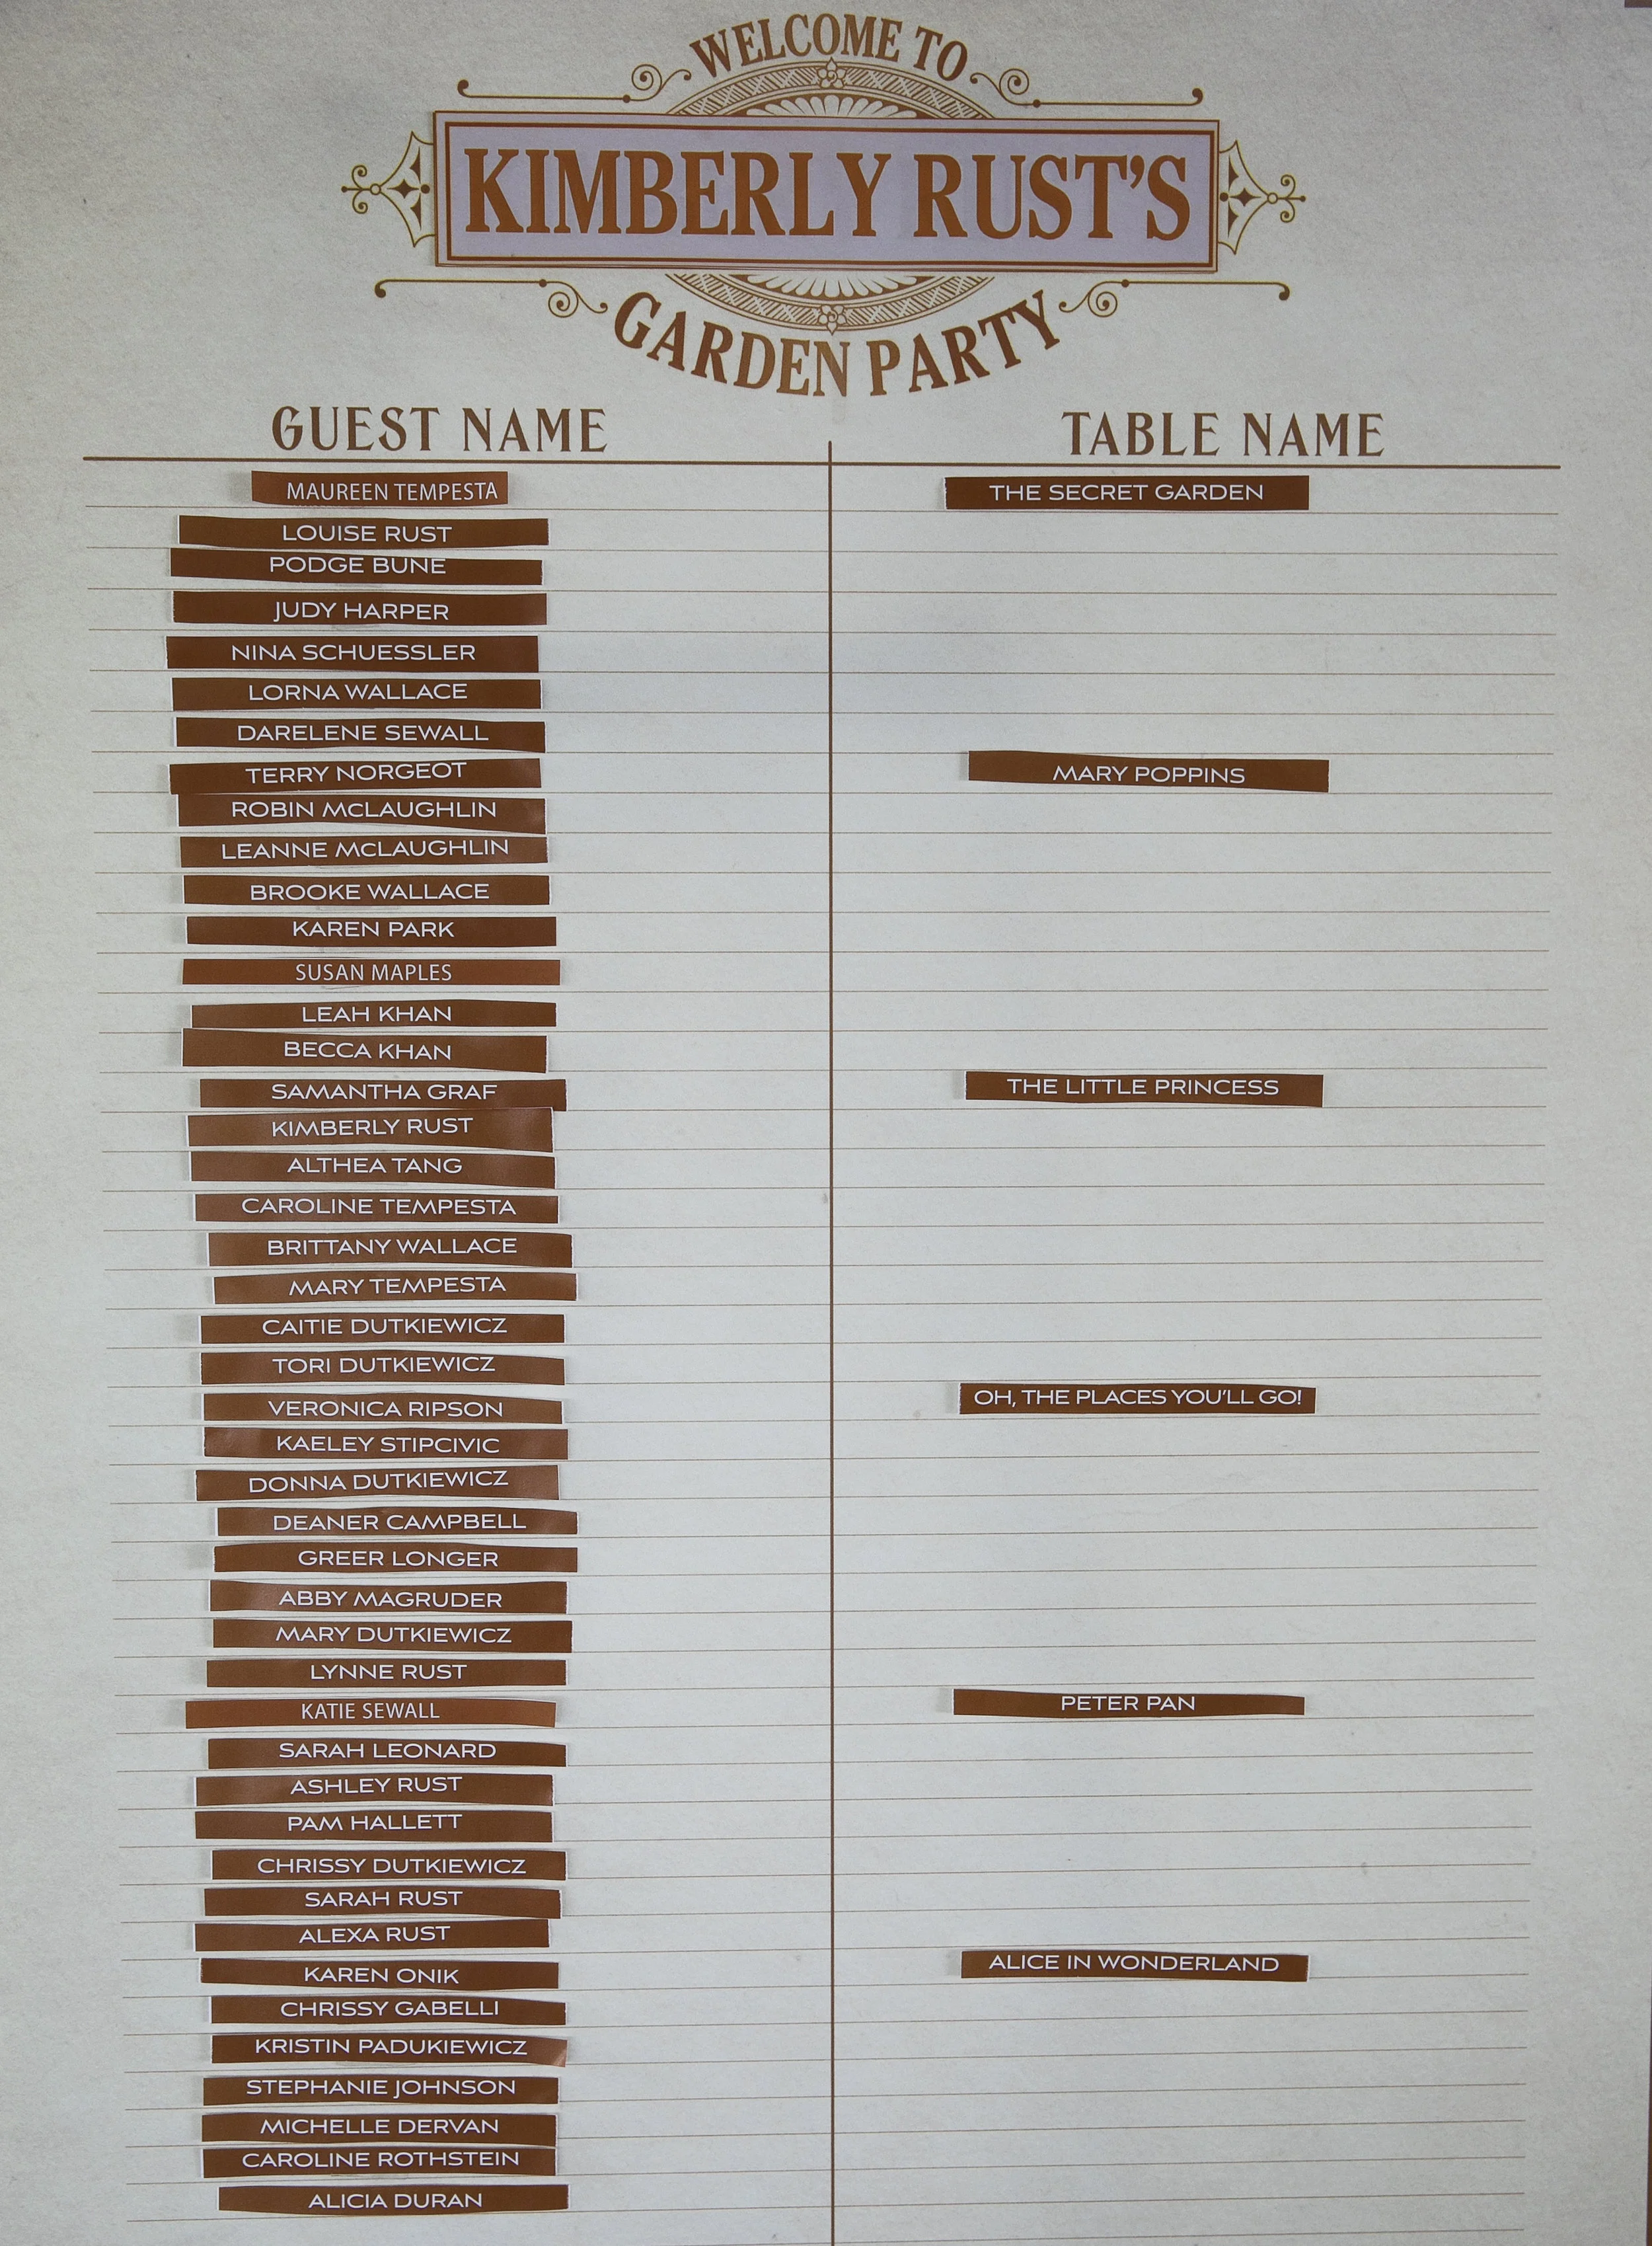 WELCOME TO
KIMBERLY RUST'S
GARDEN PARTY
GUEST NAME TABLE NAME
MAUREEN TEMPESTA THE SECRET GARDEN
LOUISE RUST
PODGE BUNE
JUDY HARPER
NINA SCHUESSLER
LORNA WALLACE
DARELENE SEWALL
TERRY NORGEOT MARY POPPINS
ROBIN McLAUGHLIN
LEANNE McLAUGHLIN
BROOKE WALLACE
KAREN PARK
SUSAN MAPLES
LEAH KHAN
BECCA KHAN
SAMANTHA GRAF THE LITTLE PRINCESS
KIMBERLY RUST
ALTHEA TANG
CAROLINE TEMPESTA
BRITTANY WALLACE
MARY TEMPESTA
CAITIE DUTKIEWICZ
TORI DUTKIEWICZ
VERONICA RIPSON OH, THE PLACES YOU'LL GO!
KAELEY STIPCIVIC
DONNA DUTKIEWICZ
DEANER CAMPBELL
GREER LONGER
ABBY MAGRUDER
MARY DUTKIEWICZ
LYNNE RUST
KATIE SEWALL PETER PAN
SARAH LEONARD
ASHLEY RUST
PAM HALLETT
CHRISSY DUTKIEWICZ
SARAH RUST
ALEXA RUST
KAREN ONIK ALICE IN WONDERLAND
CHRISSY GABELLI
KRISTIN PADUKIEWICZ
STEPHANIE JOHNSON
MICHELLE DERVAN
CAROLINE ROTHSTEIN
ALICIA DURAN